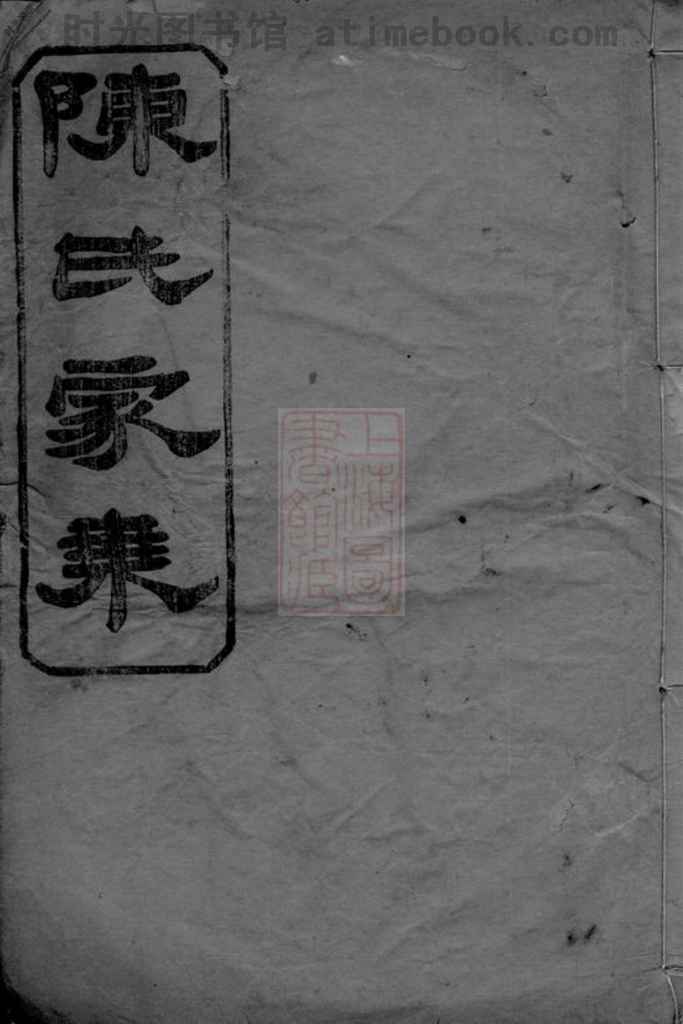 时光图书馆 atimebook.com
陳氏家乘
上海图书馆藏